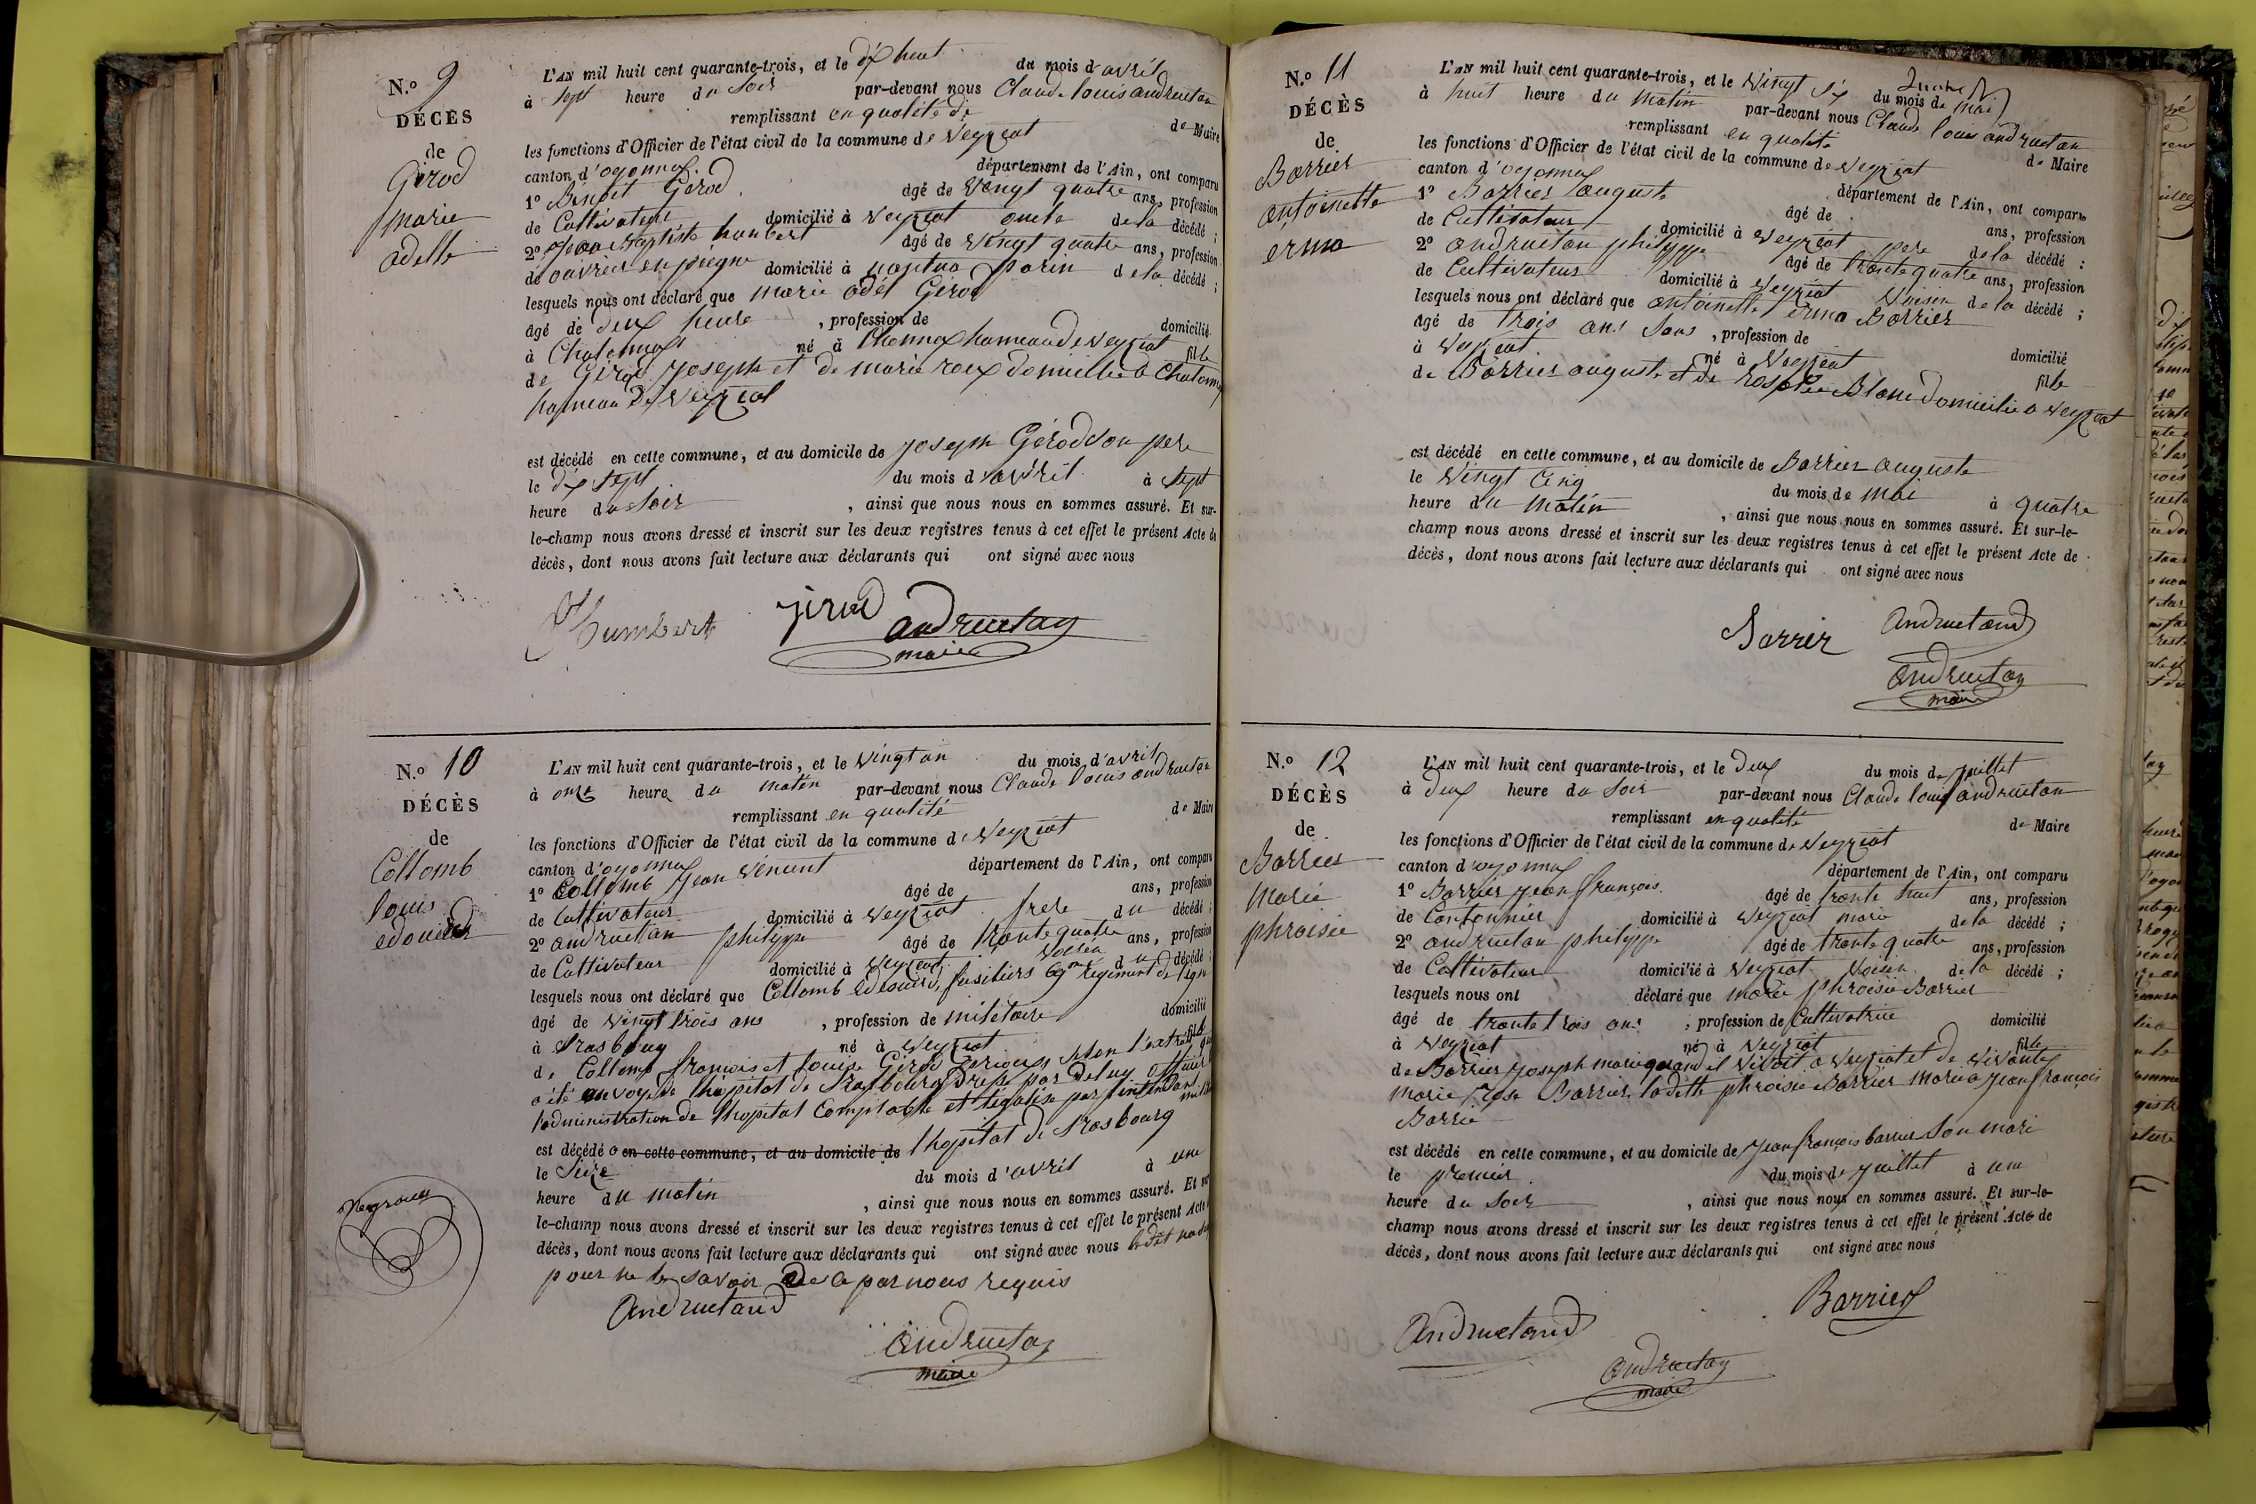 N.º 9
DÉCÈS
de
Girod
marie
adelle
L'AN mil huit cent quarante-trois, et le dix huit du mois d'avril
à sept heure du Soir par-devant nous Claude louis andruetan
remplissant en qualité de
les fonctions d'Officier de l'état civil de la commune de Veyziat de Maire
canton d'oyonnax département de l'Ain, ont comparu
1º Benoit Gerod âgé de vingt quatre ans, profession
de Cultivateur domicilié à Veyziat oncle de la décédé ;
2º jean Baptiste humbert âgé de vingt quatre ans, profession
de ouvrier en peigne domicilié à nantua parin de la décédé ;
lesquels nous ont déclaré que marie adel Gerod
âgé de deux heure , profession de domicilié
à Chatonnax né à Chonnax hameau de veyziat fille
de Gerod joseph et de marie roux domicilié à Chatonnax
hameau de Veyziat
est décédé en cette commune, et au domicile de joseph Gérod son pere
le dix sept du mois d'avril à sept
heure du Soir , ainsi que nous nous en sommes assuré. Et sur-
le-champ nous avons dressé et inscrit sur les deux registres tenus à cet effet le présent Acte de
décès, dont nous avons fait lecture aux déclarants qui ont signé avec nous
Humbert jirod andruetan
maire
N.º 10
DÉCÈS
de
Collomb
louis
edouard
L'AN mil huit cent quarante-trois, et le vingt un du mois d'avril
à onze heure du matin par-devant nous Claude louis andruetan
remplissant en qualité de Maire
les fonctions d'Officier de l'état civil de la commune de Veyziat
canton d'oyonnax département de l'Ain, ont comparu
1º Collomb jean vincent âgé de ans, profession
de Cultivateur domicilié à veyziat frere du décédé ;
2º andruetan philippe âgé de trente quatre ans, profession
de Cultivateur domicilié à veyziat voisin du décédé ;
lesquels nous ont déclaré que Collomb edouard, fusiliers 69me régiment de ligne
âgé de vingt trois ans , profession de militaire domicilié
à Strasbourg né à veyziat fils
de Collomb francois et louise Gérod Selon l'extrait qui
a été envoyé de l'hopital de Strasbourg Dressé par officier
l'administration de l'hopital Comptable et légalisé par l'intendant
est décédé a en cette commune, et au domicile de l'hopital de Strasbourg
le Seize du mois d'avril à une
heure du matin , ainsi que nous nous en sommes assuré. Et sur
le-champ nous avons dressé et inscrit sur les deux registres tenus à cet effet le présent Acte
décès, dont nous avons fait lecture aux déclarants qui ont signé avec nous
pour ne le savoir de ce par nous requis
Andruetand
andruetan
maire
N.º 11
DÉCÈS
de
Barrier
antoinette
erma
L'AN mil huit cent quarante-trois, et le vingt six du mois de mai
à huit heure du matin par-devant nous Claude louis andruetan
remplissant en qualité de Maire
les fonctions d'Officier de l'état civil de la commune de Veyziat
canton d'oyonnax département de l'Ain, ont comparu
1º Barrier auguste âgé de ans, profession
de Cultivateur domicilié à veyziat pere de la décédé ;
2º andruetan philippe âgé de trente quatre ans, profession
de Cultivateur domicilié à veyziat Voisin de la décédé ;
lesquels nous ont déclaré que antoinette erma Barrier
âgé de trois ans Sans , profession de domicilié
à veyziat né à Veyziat fille
de Barrier auguste et de rosalie Blanc domicilié a veyziat
est décédé en cette commune, et au domicile de Barrier auguste
le vingt cinq du mois de mai à quatre
heure du matin , ainsi que nous nous en sommes assuré. Et sur-le-
champ nous avons dressé et inscrit sur les deux registres tenus à cet effet le présent Acte de
décès, dont nous avons fait lecture aux déclarants qui ont signé avec nous
Barrier Andruetand
andruetan
maire
N.º 12
DÉCÈS
de
Barrier
Marie
phroisie
L'AN mil huit cent quarante-trois, et le deux du mois de juillet
à deux heure du Soir par-devant nous Claude louis andruetan
remplissant en qualité de Maire
les fonctions d'Officier de l'état civil de la commune de veyziat
canton d'oyonnax département de l'Ain, ont comparu
1º Barrier jean françois âgé de trente huit ans, profession
de Cantonnier domicilié à veyziat marie de la décédé ;
2º andruetan philippe âgé de trente quatre ans, profession
de Cultivateur domicilié à Veyziat Voisin de la décédé ;
lesquels nous ont déclaré que marie phroisie Barrier
âgé de trente trois ans , profession de Cultivatrice domicilié
à veyziat né à veyziat fille
de Barrier joseph marie quand il vivait a veyziat et de vivante
marie rose Barrier, laditte phroisie Barrier marié a jean françois
Barrier
est décédé en cette commune, et au domicile de jean françois barrier Son mari
le premier du mois de juillet à une
heure du Soir , ainsi que nous nous en sommes assuré. Et sur-le-
champ nous avons dressé et inscrit sur les deux registres tenus à cet effet le présent Acte de
décès, dont nous avons fait lecture aux déclarants qui ont signé avec nous
Barrier
Andruetand
andruetan
maire